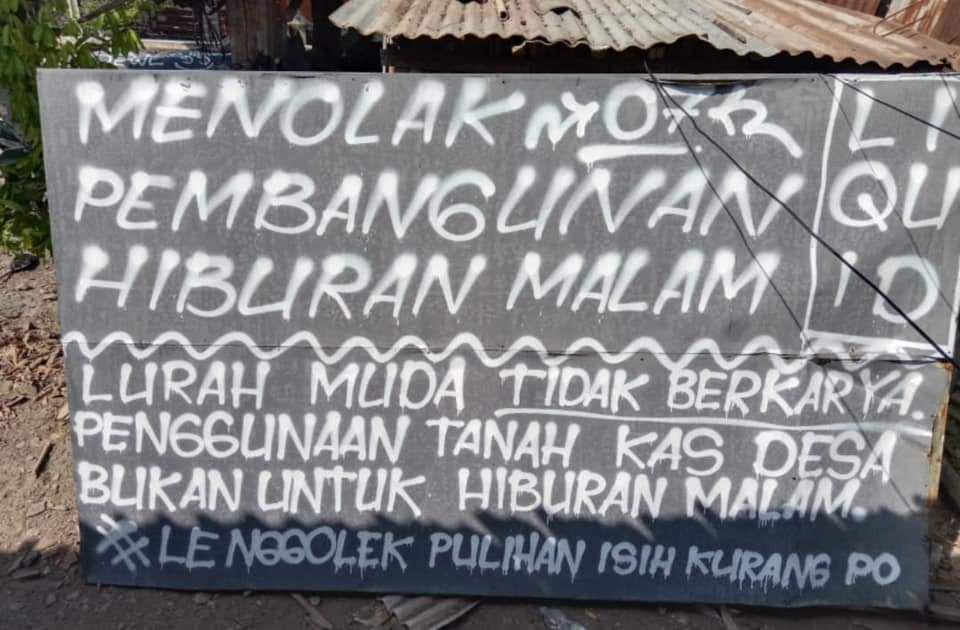 MENOLAK
PEMBANGUNAN
HIBURAN MALAM
LI
QU
ID
LURAH MUDA TIDAK BERKARYA.
PENGGUNAAN TANAH KAS DESA
BUKAN UNTUK HIBURAN MALAM.
# LENGGOLEK PULIHAN ISIH KURANG PO